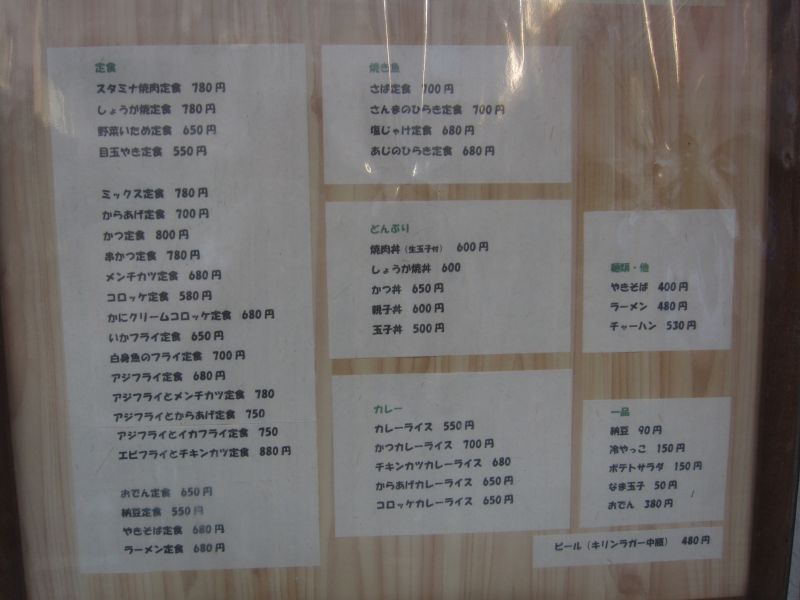 定食
スタミナ焼肉定食 780円
しょうが焼定食 780円
野菜いため定食 650円
目玉やき定食 550円
ミックス定食 780円
からあげ定食 700円
かつ定食 800円
串かつ定食 780円
メンチカツ定食 680円
コロッケ定食 580円
かにクリームコロッケ定食 680円
いかフライ定食 650円
白身魚のフライ定食 700円
アジフライ定食 680円
アジフライとメンチカツ定食 780
アジフライとからあげ定食 750
アジフライとイカフライ定食 750
エビフライとチキンカツ定食 880円
おでん定食 650円
納豆定食 550円
やきそば定食 680円
ラーメン定食 680円
焼き魚
さば定食 700円
さんまのひらき定食 700円
塩じゃけ定食 680円
あじのひらき定食 680円
どんぶり
焼肉丼（生玉子付） 600円
しょうが焼丼 600
かつ丼 650円
親子丼 600円
玉子丼 500円
カレー
カレーライス 550円
かつカレーライス 700円
チキンカツカレーライス 680
からあげカレーライス 650円
コロッケカレーライス 650円
麺類・他
やきそば 400円
ラーメン 480円
チャーハン 530円
一品
納豆 90円
冷やっこ 150円
ポテトサラダ 150円
なま玉子 50円
おでん 380円
ビール（キリンラガー中瓶） 480円